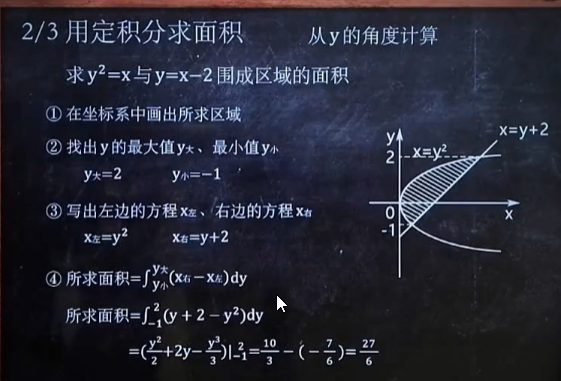 2/3 用定积分求面积 从y的角度计算
求y²=x与y=x−2围成区域的面积
① 在坐标系中画出所求区域
② 找出y的最大值y大、最小值y小
y大=2 y小=−1
③ 写出左边的方程x左、右边的方程x右
x左=y² x右=y+2
④ 所求面积=∫y小^y大(x右−x左)dy
所求面积=∫₋₁²(y+2−y²)dy
=(y²/2+2y−y³/3)|₋₁²=10/3−(−7/6)=27/6
y
x=y+2
2
x=y²
0
x
-1